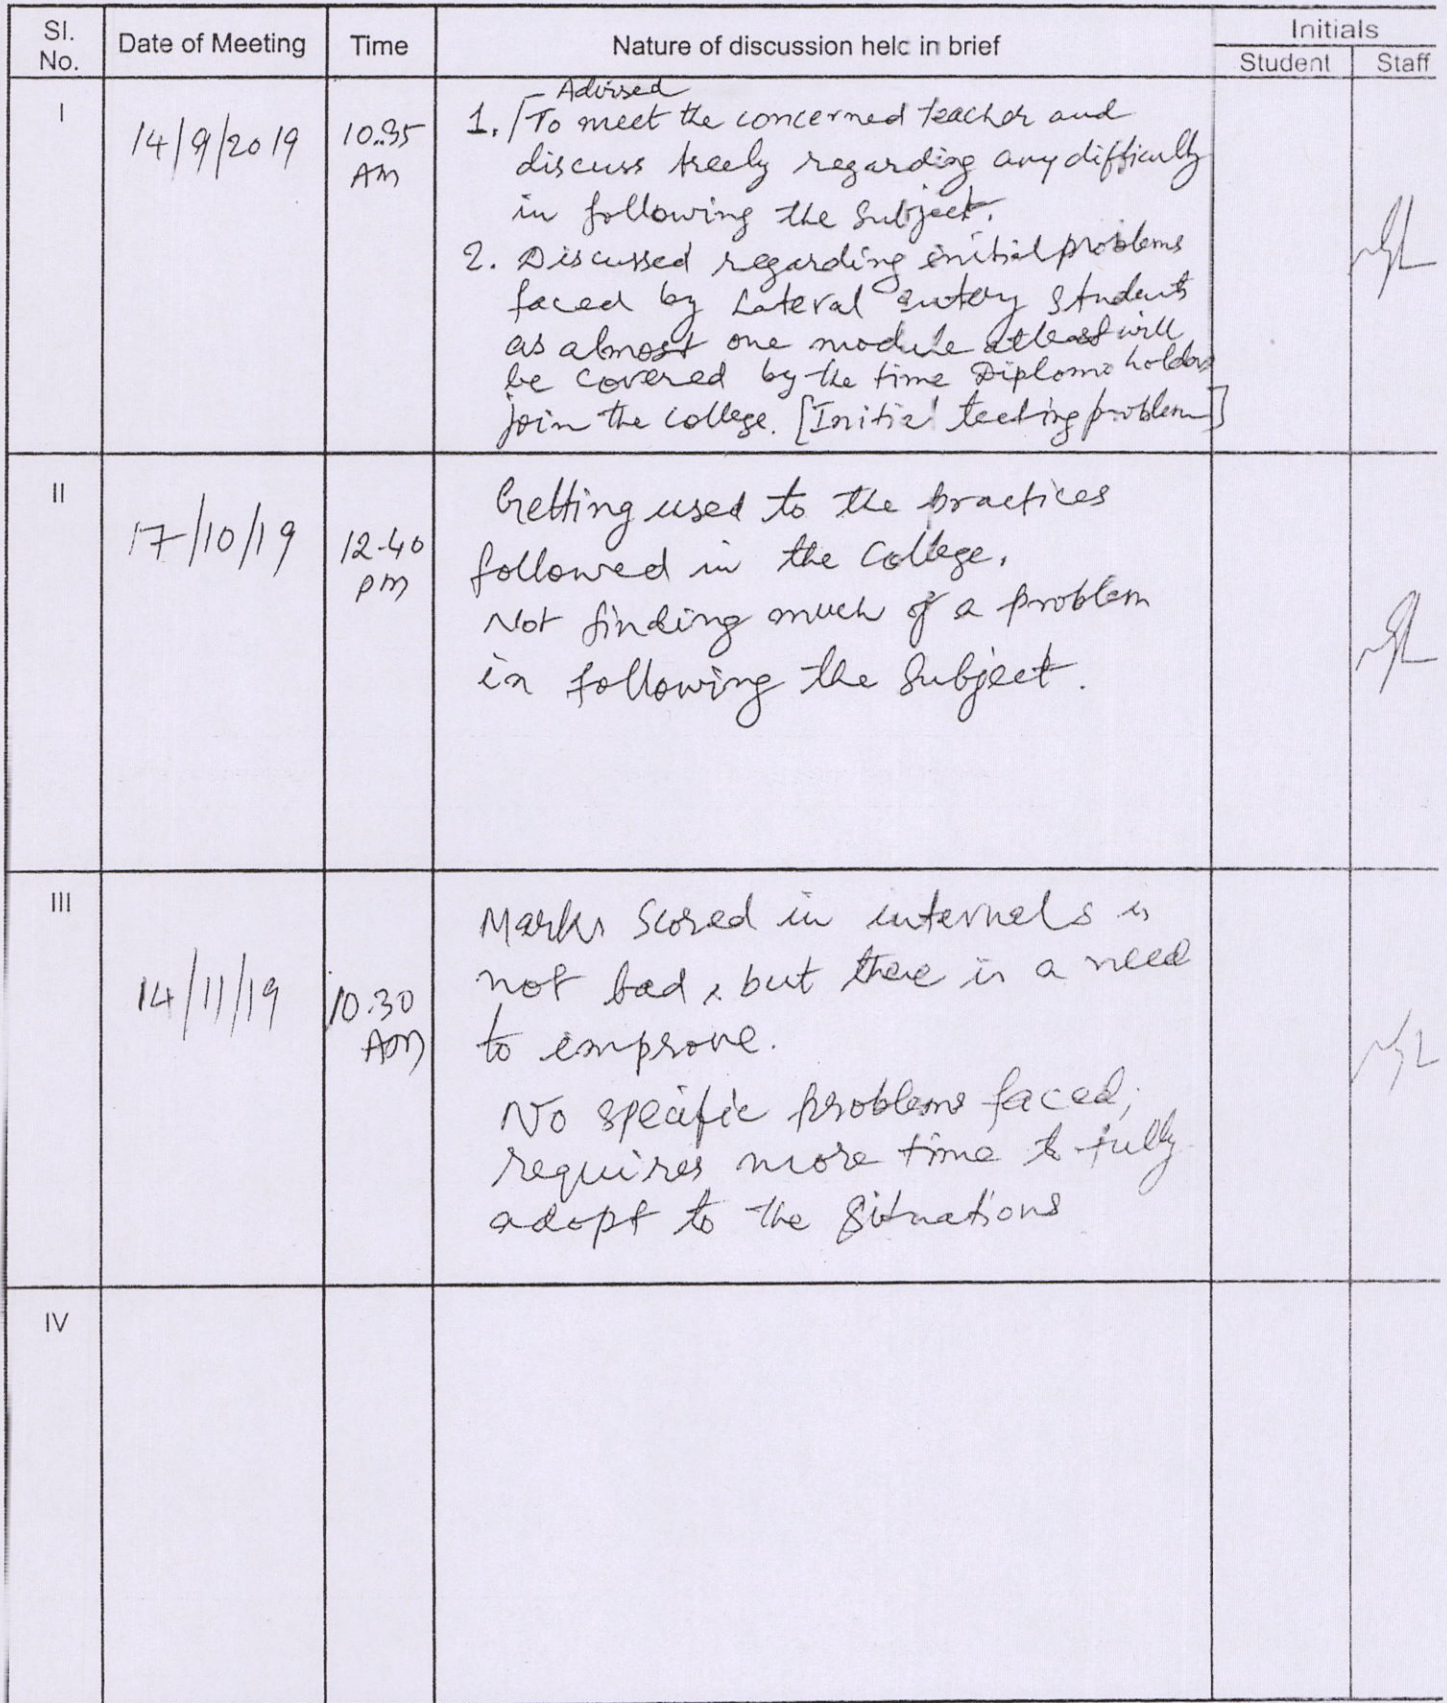 Sl. No. Date of Meeting Time Nature of discussion held in brief Initials
Student Staff
I
14/9/2019
10.35
AM
Advised
1. To meet the concerned teacher and
discuss freely regarding any difficulty
in following the Subject.
2. Discussed regarding initial problems
faced by Lateral entry Students
as almost one module atleast will
be covered by the time Diploma holders
join the college. [Initial teeting problem]
II
17/10/19
12.40
PM
Getting used to the practices
followed in the College.
Not finding much of a problem
in following the Subject.
III
14/11/19
10.30
AM
Marks Scored in internals is
not bad, but there is a need
to improve.
No specific problems faced;
requires more time to fully
adopt to the Situations
IV